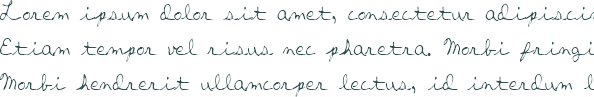 Lorem ipsum dolor sit amet, consectetur adipisci
Etiam tempor vel risus nec pharetra. Morbi fringi
Morbi hendrerit ullamcorper lectus, id interdum l